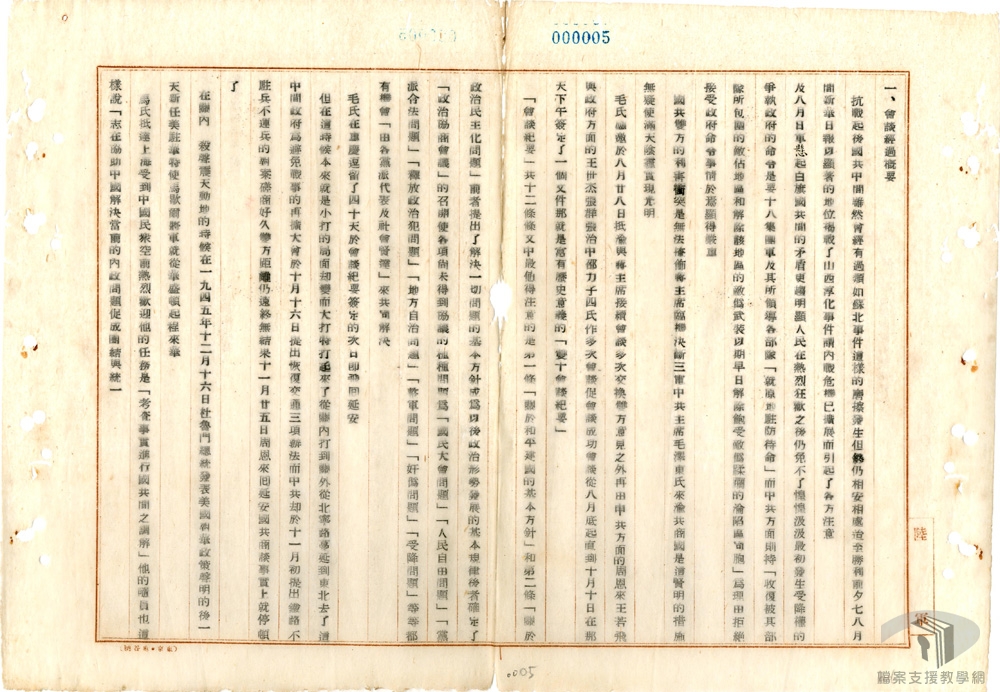 000005
一、會談經過概要
抗戰起後國共中間雖然曾經有過類如蘇北事件這樣的磨擦發生但終仍相安相處迨至勝利前夕七八月
間新華日報以顯著的地位揭載了山西淳化事件謂內戰危機已擴展而引起了各方注意
及八月日軍懸起白旗國共間的矛盾更講明顯人民在熱烈狂歡之後仍免不了惶惶汲汲最初發生受降權的
爭執政府的命令是要十八集團軍及其所領導各部隊「就原地駐防待命」而中共方面則持「收復被其部
隊所包圍的敵佔地區和解除該地區的敵偽武裝以期早日解除飽受敵偽蹂躪的淪陷區同胞」為理由拒絕
接受政府命令事情於是顯得嚴重
國共雙方的利害衝突是無法掩飾蔣主席臨機決斷三電中共主席毛澤東氏來渝共商國是清賢明的措施
無疑使滿天陰霾頓現光明
毛氏應邀於八月廿八日抵渝與蔣主席接續會談多次交換雙方意見之外再由中共方面的周恩來王若飛
與政府方面的王世杰張群張治中邵力子四氏作多次會談促會議成功會談從八月底起直到十月十日在那
天下午簽定了一個文件那就是富有歷史意義的「雙十會談紀要」
「會談紀要」共十二條條文中最值得注意的是第一條「關於和平建國的基本方針」和第二條「關於
政治民主化問題」前者提出了解決一切問題的基本方針成為以後政治形勢發展的基本規律後者確定了
「政治協商會議」的召開使各項尚未得到協議的種種問題為「國民大會問題」「人民自由問題」「黨
派合法問題」「釋放政治犯問題」「地方自治問題」「整軍問題」「奸偽問題」「受降問題」等等都
有機會「由各黨派代表及社會賢達」來共商解決
毛氏在重慶逗留了四十天於會談紀要簽定的次日即飛回延安
但在這時候本來就是小打的局面却變而大打特打起來了從關內打到關外從北寧路蔓延到東北去了這
中間政府為避免戰事的再擴大會於十月十六日提出恢復交通三項辦法而中共却於十一月初提出鐵路不
駐兵不運兵的對案磋商好久雙方距離仍遠終無結果十一月廿五日周恩來返延安國共商談事實上就停頓
了
在關內 殺聲震天動地的時候在一九四五年十二月十六日杜魯門總統發表美國對華政策聲明的後一
天新任美駐華特使馬歇爾將軍就從華盛頓起程來華
馬氏抵達上海受到中國民衆空前熱烈歡迎他的任務是「考查事實進行國共間之調解」他的隨員也這
樣說「志在協助中國解決當前的內政問題促成團結與統一
陸
軍
0005
檔案支援教學網